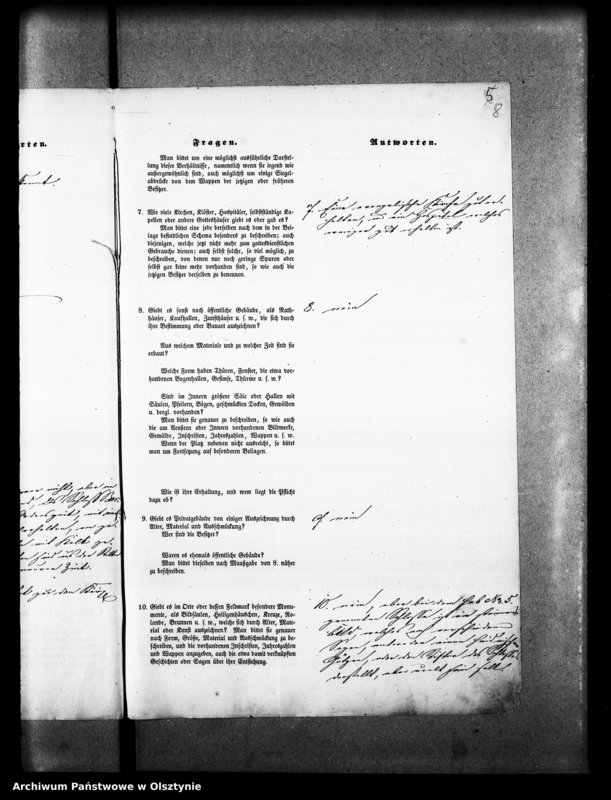 5
8
rten.
Fragen.
Antworten.
Man bittet um eine möglichst ausführliche Darstel-
lung dieser Verhältnisse, namentlich wenn sie irgend wie
außergewöhnlich sind, auch möglichst um einige Siegel-
abdrücke von dem Wappen der jetzigen oder früheren
Besitzer.
7. Wie viele Kirchen, Klöster, Hospitäler, selbstständige Ka-
pellen oder andere Gotteshäuser giebt es oder gab es?
Man bittet eine jede derselben nach dem in der Bei-
lage befindlichen Schema besonders zu beschreiben; auch
diejenigen, welche jetzt nicht mehr zum gottesdienstlichen
Gebrauche dienen; auch selbst solche, so viel möglich, zu
beschreiben, von denen nur noch geringe Spuren oder
selbst gar keine mehr vorhanden sind, so wie auch die
jetzigen Besitzer derselben zu benennen.
7. Eine evangelische Kirche gut er-
halten, und ein Hospital welches
weniger gut erhalten ist.
8. Giebt es sonst noch öffentliche Gebäude, als Rath-
häuser, Kaufhallen, Zunfthäuser u. s. w., die sich durch
ihre Bestimmung oder Bauart auszeichnen?
8. nein
Aus welchem Materiale und zu welcher Zeit sind sie
erbaut?
Welche Form haben Thüren, Fenster, die etwa vor-
handenen Bogenhallen, Gesimse, Thürme u. s. w.?
Sind im Innern größere Säle oder Hallen mit
Säulen, Pfeilern, Bögen, geschmückten Decken, Gewölben
u. dergl. vorhanden?
Man bittet sie genauer zu beschreiben, so wie auch
die am Aeußern oder Innern vorhandenen Bildwerke,
Gemälde, Inschriften, Jahreszahlen, Wappen u. s. w.
Wenn der Platz nebenan nicht ausreicht, so bittet
man um Fortsetzung auf besonderen Beilagen.
Wie ist ihre Erhaltung, und wem liegt die Pflicht
dazu ob?
9. Giebt es Privatgebäude von einiger Auszeichnung durch
Alter, Material und Ausschmückung?
Wer sind die Besitzer?
9. nein
Waren es ehemals öffentliche Gebäude?
Man bittet dieselben nach Maaßgabe von 8. näher
zu beschreiben.
10. Giebt es im Orte oder dessen Feldmark besondere Monu-
mente, als Bildsäulen, Heiligenhäuschen, Kreuze, Ro-
lande, Brunnen u. s. w., welche sich durch Alter, Mate-
rial oder Kunst auszeichnen? Man bittet sie genauer
nach Form, Größe, Material und Ausschmückung zu be-
schreiben, und die vorhandenen Inschriften, Jahreszahlen
und Wappen anzugeben, auch die etwa damit verknüpften
Geschichten oder Sagen über ihre Entstehung.
10. nein, aber bei dem sub No 5.
Schlosse ist ein
bild, welches nach verschiedenen
Sagen, entweder einen heidnischen
Götzen, oder den Erbauer des Schlosses
darstellt, aber
Archiwum Państwowe w Olsztynie